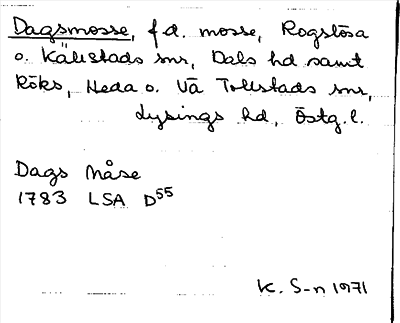 Dagsmosse, f.d. mosse, Rogslösa
o. Källstads snr, Dals hd samt
Röks, Heda o. Vä Tollstads snr,
Lysings hd, Östg.l.
Dags Måse
1783 LSA D55
K. S-n 1971